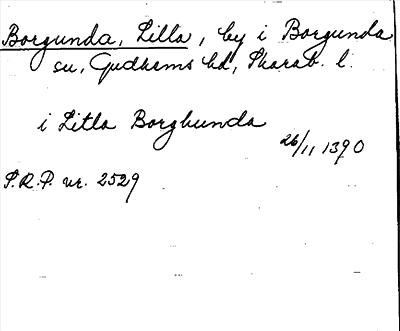 Borgunda, Lilla, by i Borgunda
sn, Gudhems hd, Skarab. l.
i Litla Borghunda
26/11 1390
S.R.P. nr. 2529